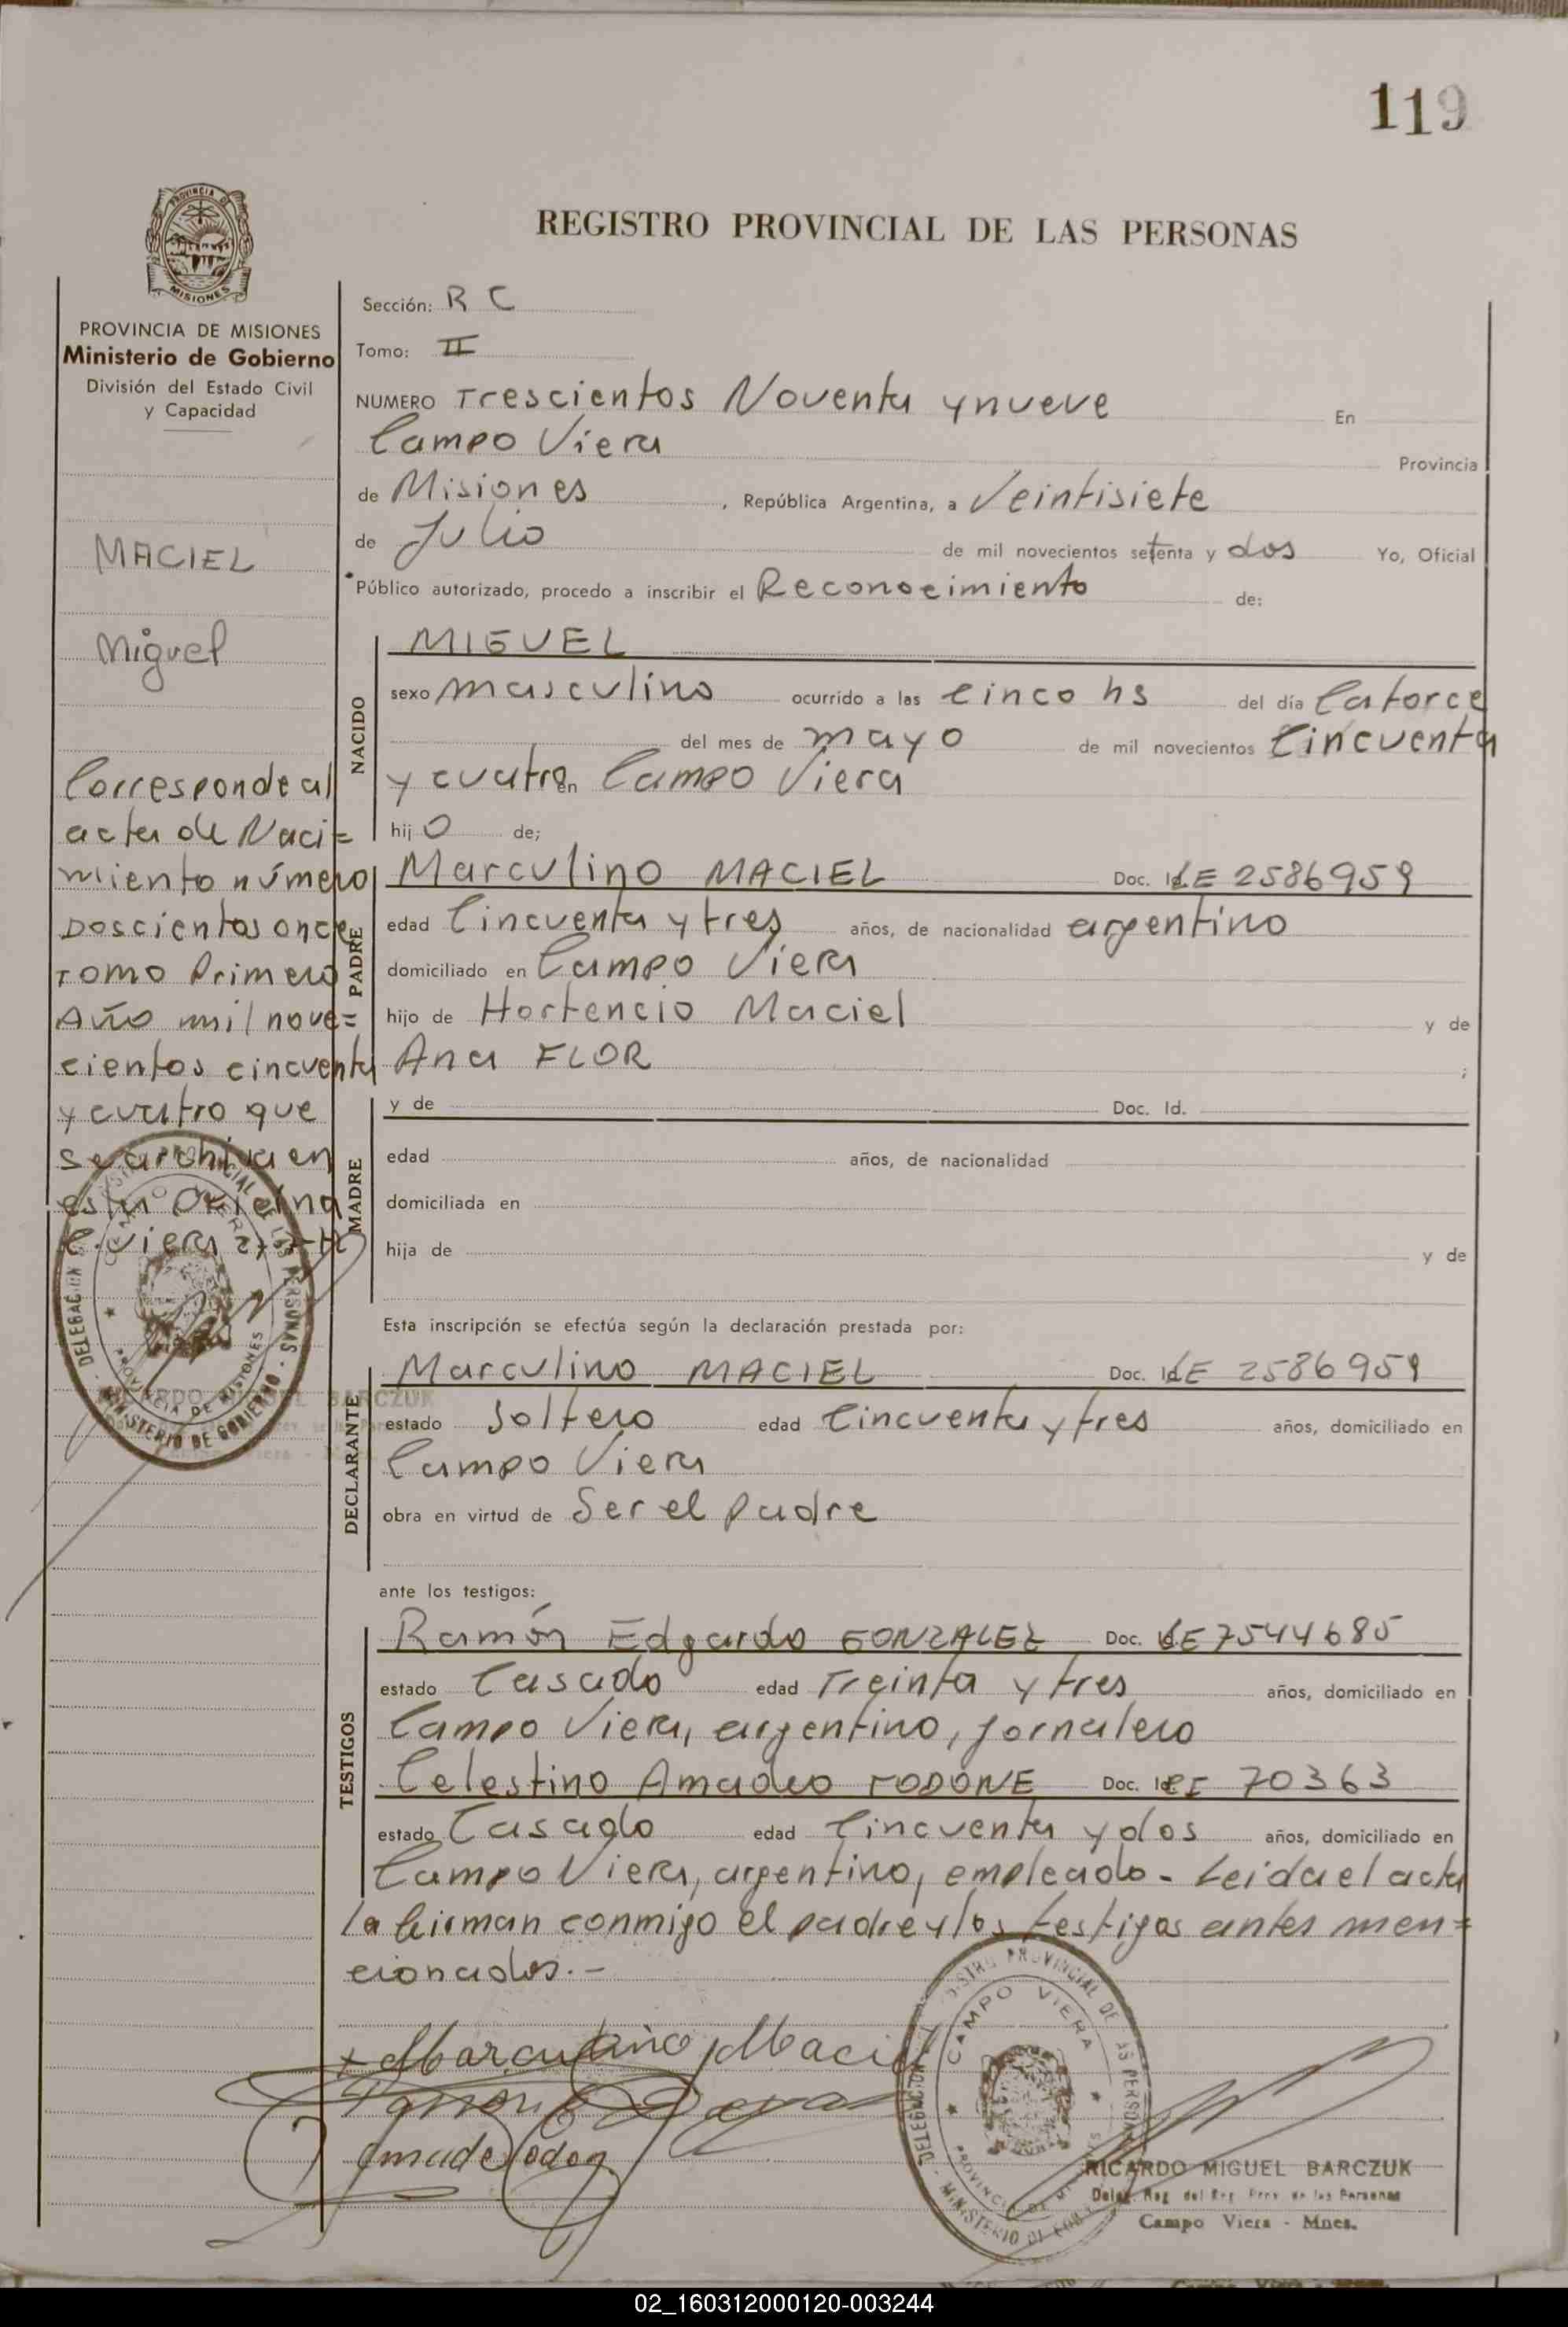 119
REGISTRO PROVINCIAL DE LAS PERSONAS
PROVINCIA DE MISIONES
Ministerio de Gobierno
División del Estado Civil
y Capacidad
MACIEL
Miguel
Corresponde al
acta de Naci=
miento número
Doscientos once
Tomo Primero
Año mil nove=
cientos cincuenta
y cuatro que
se archiva en
esta Oficina
C. Viera
Sección: R C
Tomo: II
NUMERO Trescientos Noventa y nueve En
Campo Viera Provincia
de Misiones, República Argentina, a Veintisiete
de Julio de mil novecientos setenta y dos Yo, Oficial
Público autorizado, procedo a inscribir el Reconocimiento de:
NACIDO
MIGUEL
sexo masculino ocurrido a las Cinco hs del día Catorce
del mes de mayo de mil novecientos Cincuenta
y cuatro en Campo Viera
hijo de;
PADRE
Marculino MACIEL Doc. Id. LE 2586959
edad Cincuenta y tres años, de nacionalidad argentino
domiciliado en Campo Viera
hijo de Hortencio Maciel y de
Ana FLOR ;
MADRE
y de Doc. Id.
edad años, de nacionalidad
domiciliada en
hija de y de
Esta inscripción se efectúa según la declaración prestada por:
DECLARANTE
Marculino MACIEL Doc. Id. LE 2586959
estado Soltero edad Cincuenta y tres años, domiciliado en
Campo Viera
obra en virtud de Ser el padre
ante los testigos:
TESTIGOS
Ramón Edgardo GONZALEZ Doc. LE 7544685
estado Casado edad Treinta y tres años, domiciliado en
Campo Viera, argentino, jornalero
Celestino Amadeo TODONE Doc. Id. CI 70363
estado Casado edad Cincuenta y dos años, domiciliado en
Campo Viera, argentino, empleado - Leida el acta
la firman conmigo el padre y los testigos antes men=
cionados.-
Marculino Maciel
DELEGACION REGISTRO PROVINCIAL DE LAS PERSONAS
CAMPO VIERA
PROVINCIA DE MISIONES
MINISTERIO DE GOBIERNO
RICARDO MIGUEL BARCZUK
Deleg. Reg. del Reg. Prov. de las Personas
Campo Viera - Mnes.
02_160312000120-003244